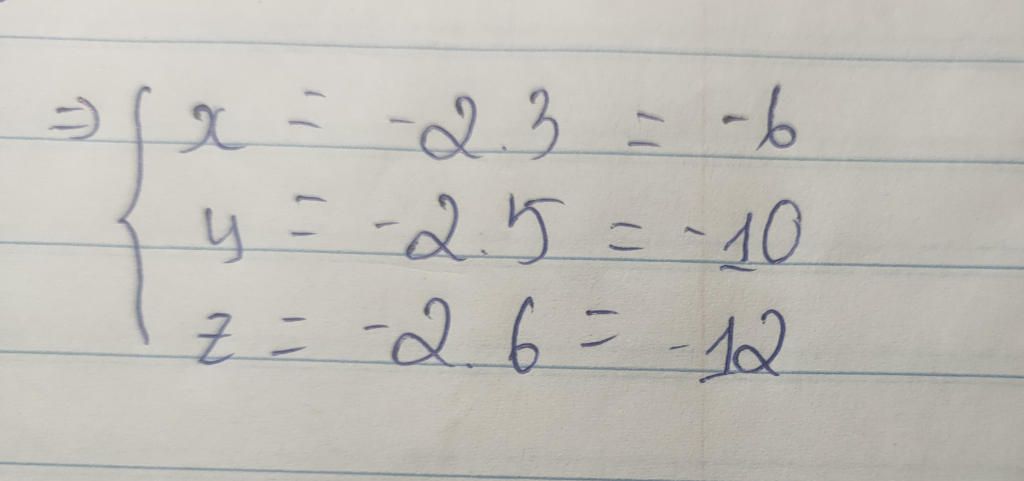 ⇒ { x = -2.3 = -6
y = -2.5 = -10
z = -2.6 = -12